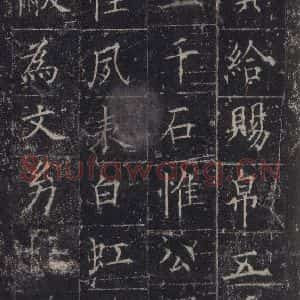 給賜帛五
千石惟公
夙表白虹
為文
Shufawang.CN